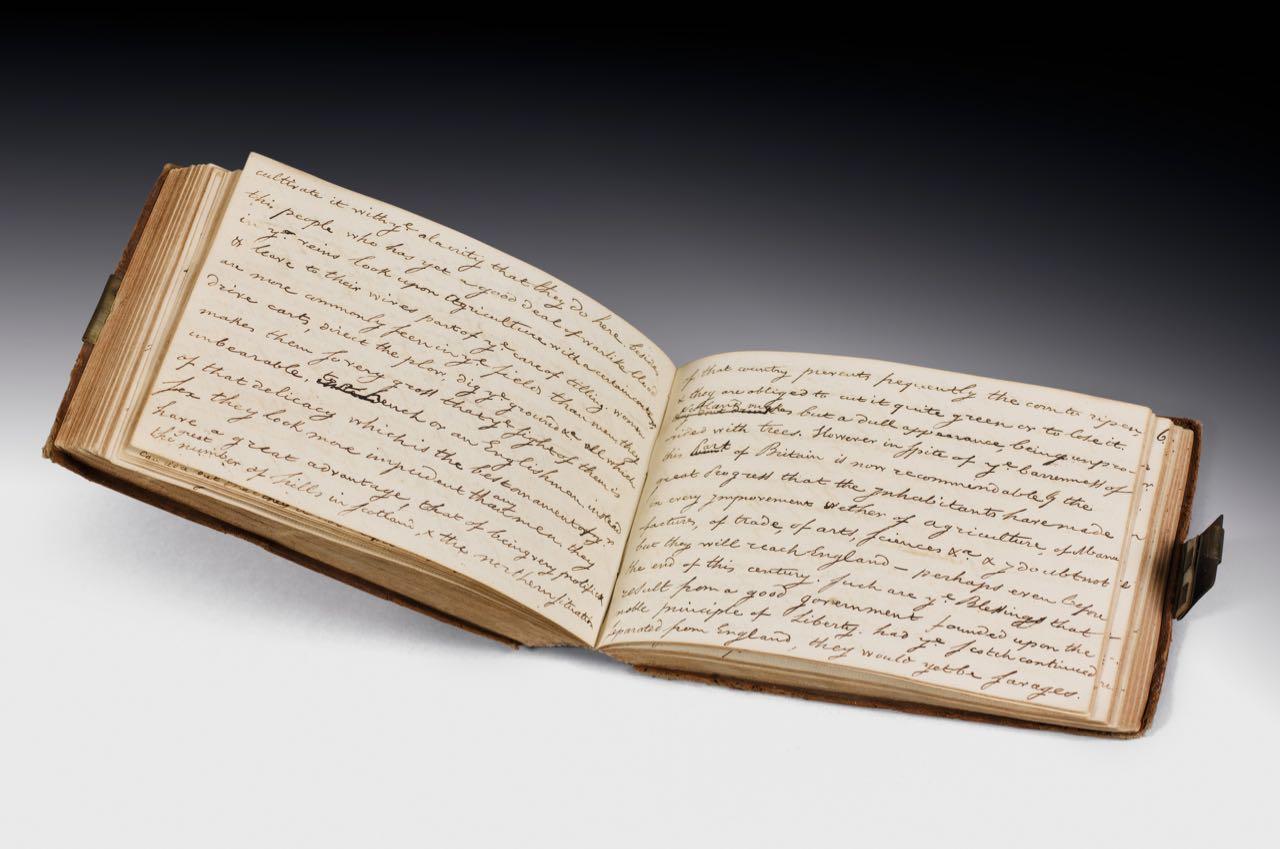 cultivate it with ye alacrity that they do here. besides
this people who has yet a good deal of warlike blood
in ye veins look upon Agriculture with uncertainess
& leave to their wives part of ye cares of tilling. women
are more commonly seen in ye fields than men. they
drive carts, direct the plow, digg ye ground or all which
makes them so very gross that ye sight of them is
unbearable. french or an Englishman instead
of that delicacy which is the best ornament of yr
sex they look more impudent than men. they
have a great advantage, that of being very prolifick
the great number of hills in scotland, & the northern situation
of that country prevents frequently the corn to ripen
& they are obliged to cut it quite green or to lose it.
has but a dull appearance, being unpro-
vided with trees. However in spite of ye bareness of
this Part of Britain is now recommendable by the
great progress that the ynhabitants have made
in every ymprovement wether of agriculture, of Manu-
facture, of trade, of arts, sciences &a. & y doubt not
but they will reach England – perhaps even before
the end of this century. such are ye Blessings that
result from a good government founded upon the
noble principle of Liberty. had ye scotch continued
separated from England, they would yet be savages.